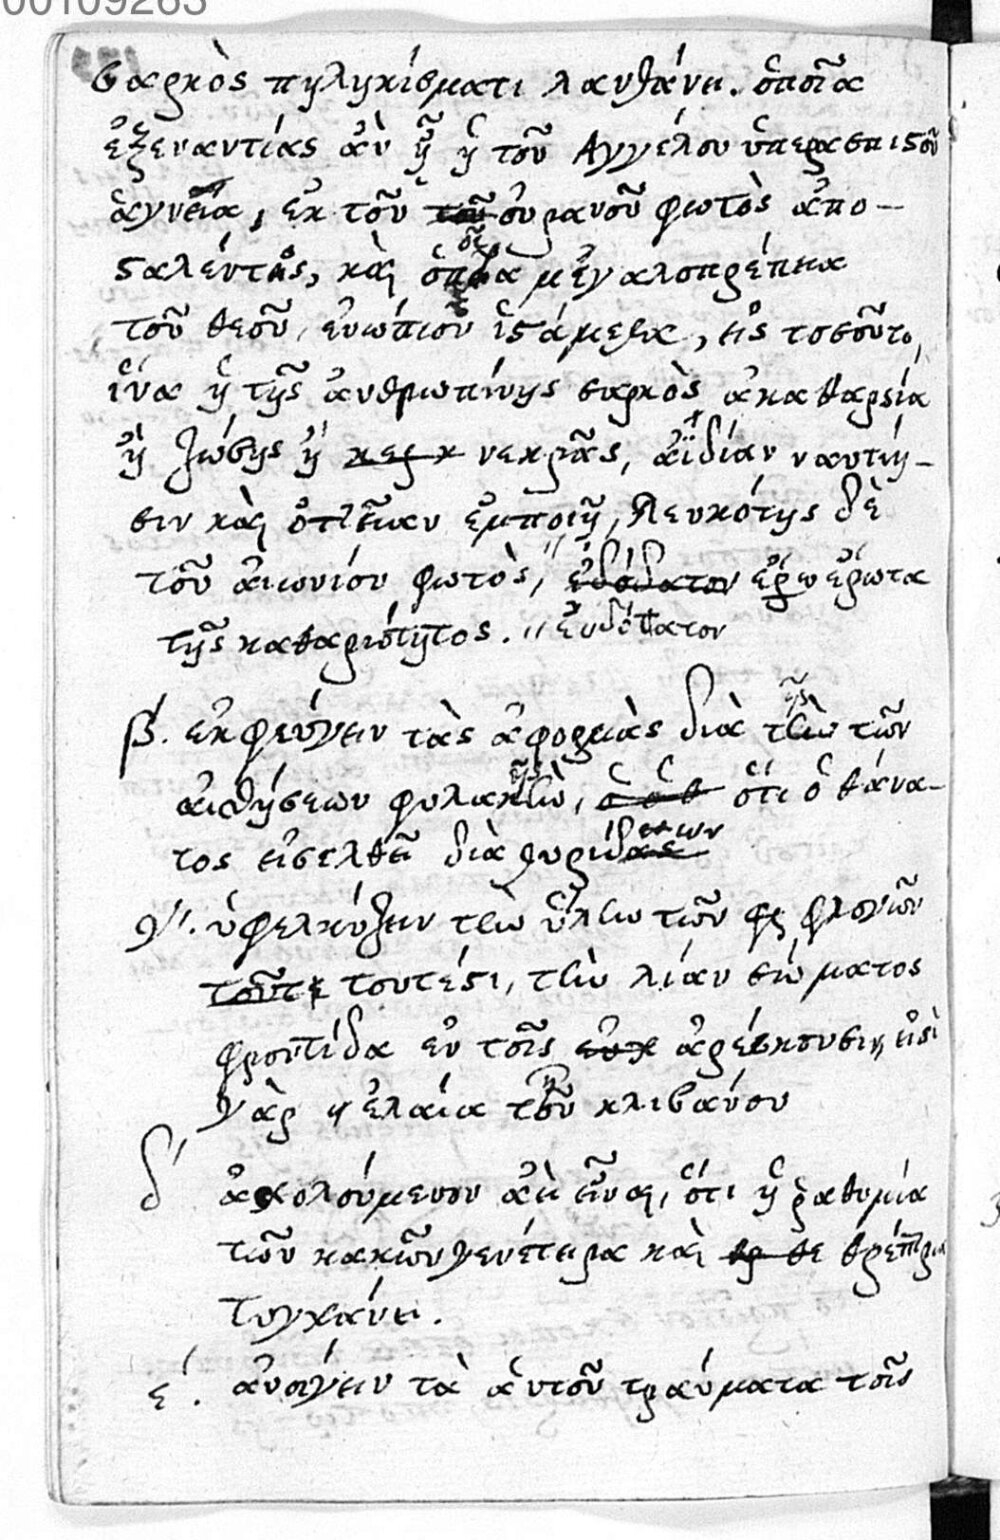 00109263
σαρκὸς πηλικίσματι λανθάνει. ὁποῖα
ἐξεναντίας ἂν ᾖ ἡ τοῦ Ἀγγέλου ὑπερασπιστοῦ
ἁγνεία, ἐκ τοῦ τοῦ οὐρανοῦ φωτὸς ἀπο-
σταλέντος, καὶ ὁποία μεγαλοπρέπεια
τοῦ θεοῦ, ἐνώπιον ἱστάμεθα, εἰς τοσοῦτο,
ἵνα ἡ τῆς ἀνθρωπίνης σαρκὸς ἀκαθαρσία
ἢ ζώσης ἢ νεκρᾶς, ἀϊδίαν ναυτίη-
σιν καὶ ἐμποιῇ, λευκότης δὲ
τοῦ αἰωνίου φωτὸς, ἔρωτα
τῆς καθαριότητος. ἐνδότατον
β´. ἐκφεύγειν τὰς ἀφορμὰς διὰ τῆς τῶν
αἰσθήσεων φυλακῆς, ὅτι ὁ θάνα-
τος εἰσελθεῖ διὰ θυρίδων
γ´. ὑφελκύζειν τὴν ὕλην τῶν φλογῶν
τουτέστι, τὴν λίαν σώματος
φροντίδα ἐν τοῖς ἀρέσκουσιν, εἰσὶ
γὰρ ἡ ἐλαία τοῦ κλιβάνου
δ´ ἀσχολούμενον ἀεὶ εἶναι, ὅτι ἡ ῥαθυμία
τῶν κακῶν γενέτειρα καὶ θρέπτρια
τυγχάνει.
ε´. ἀνοίγειν τὰ ἑαυτοῦ τραύματα τοῖς